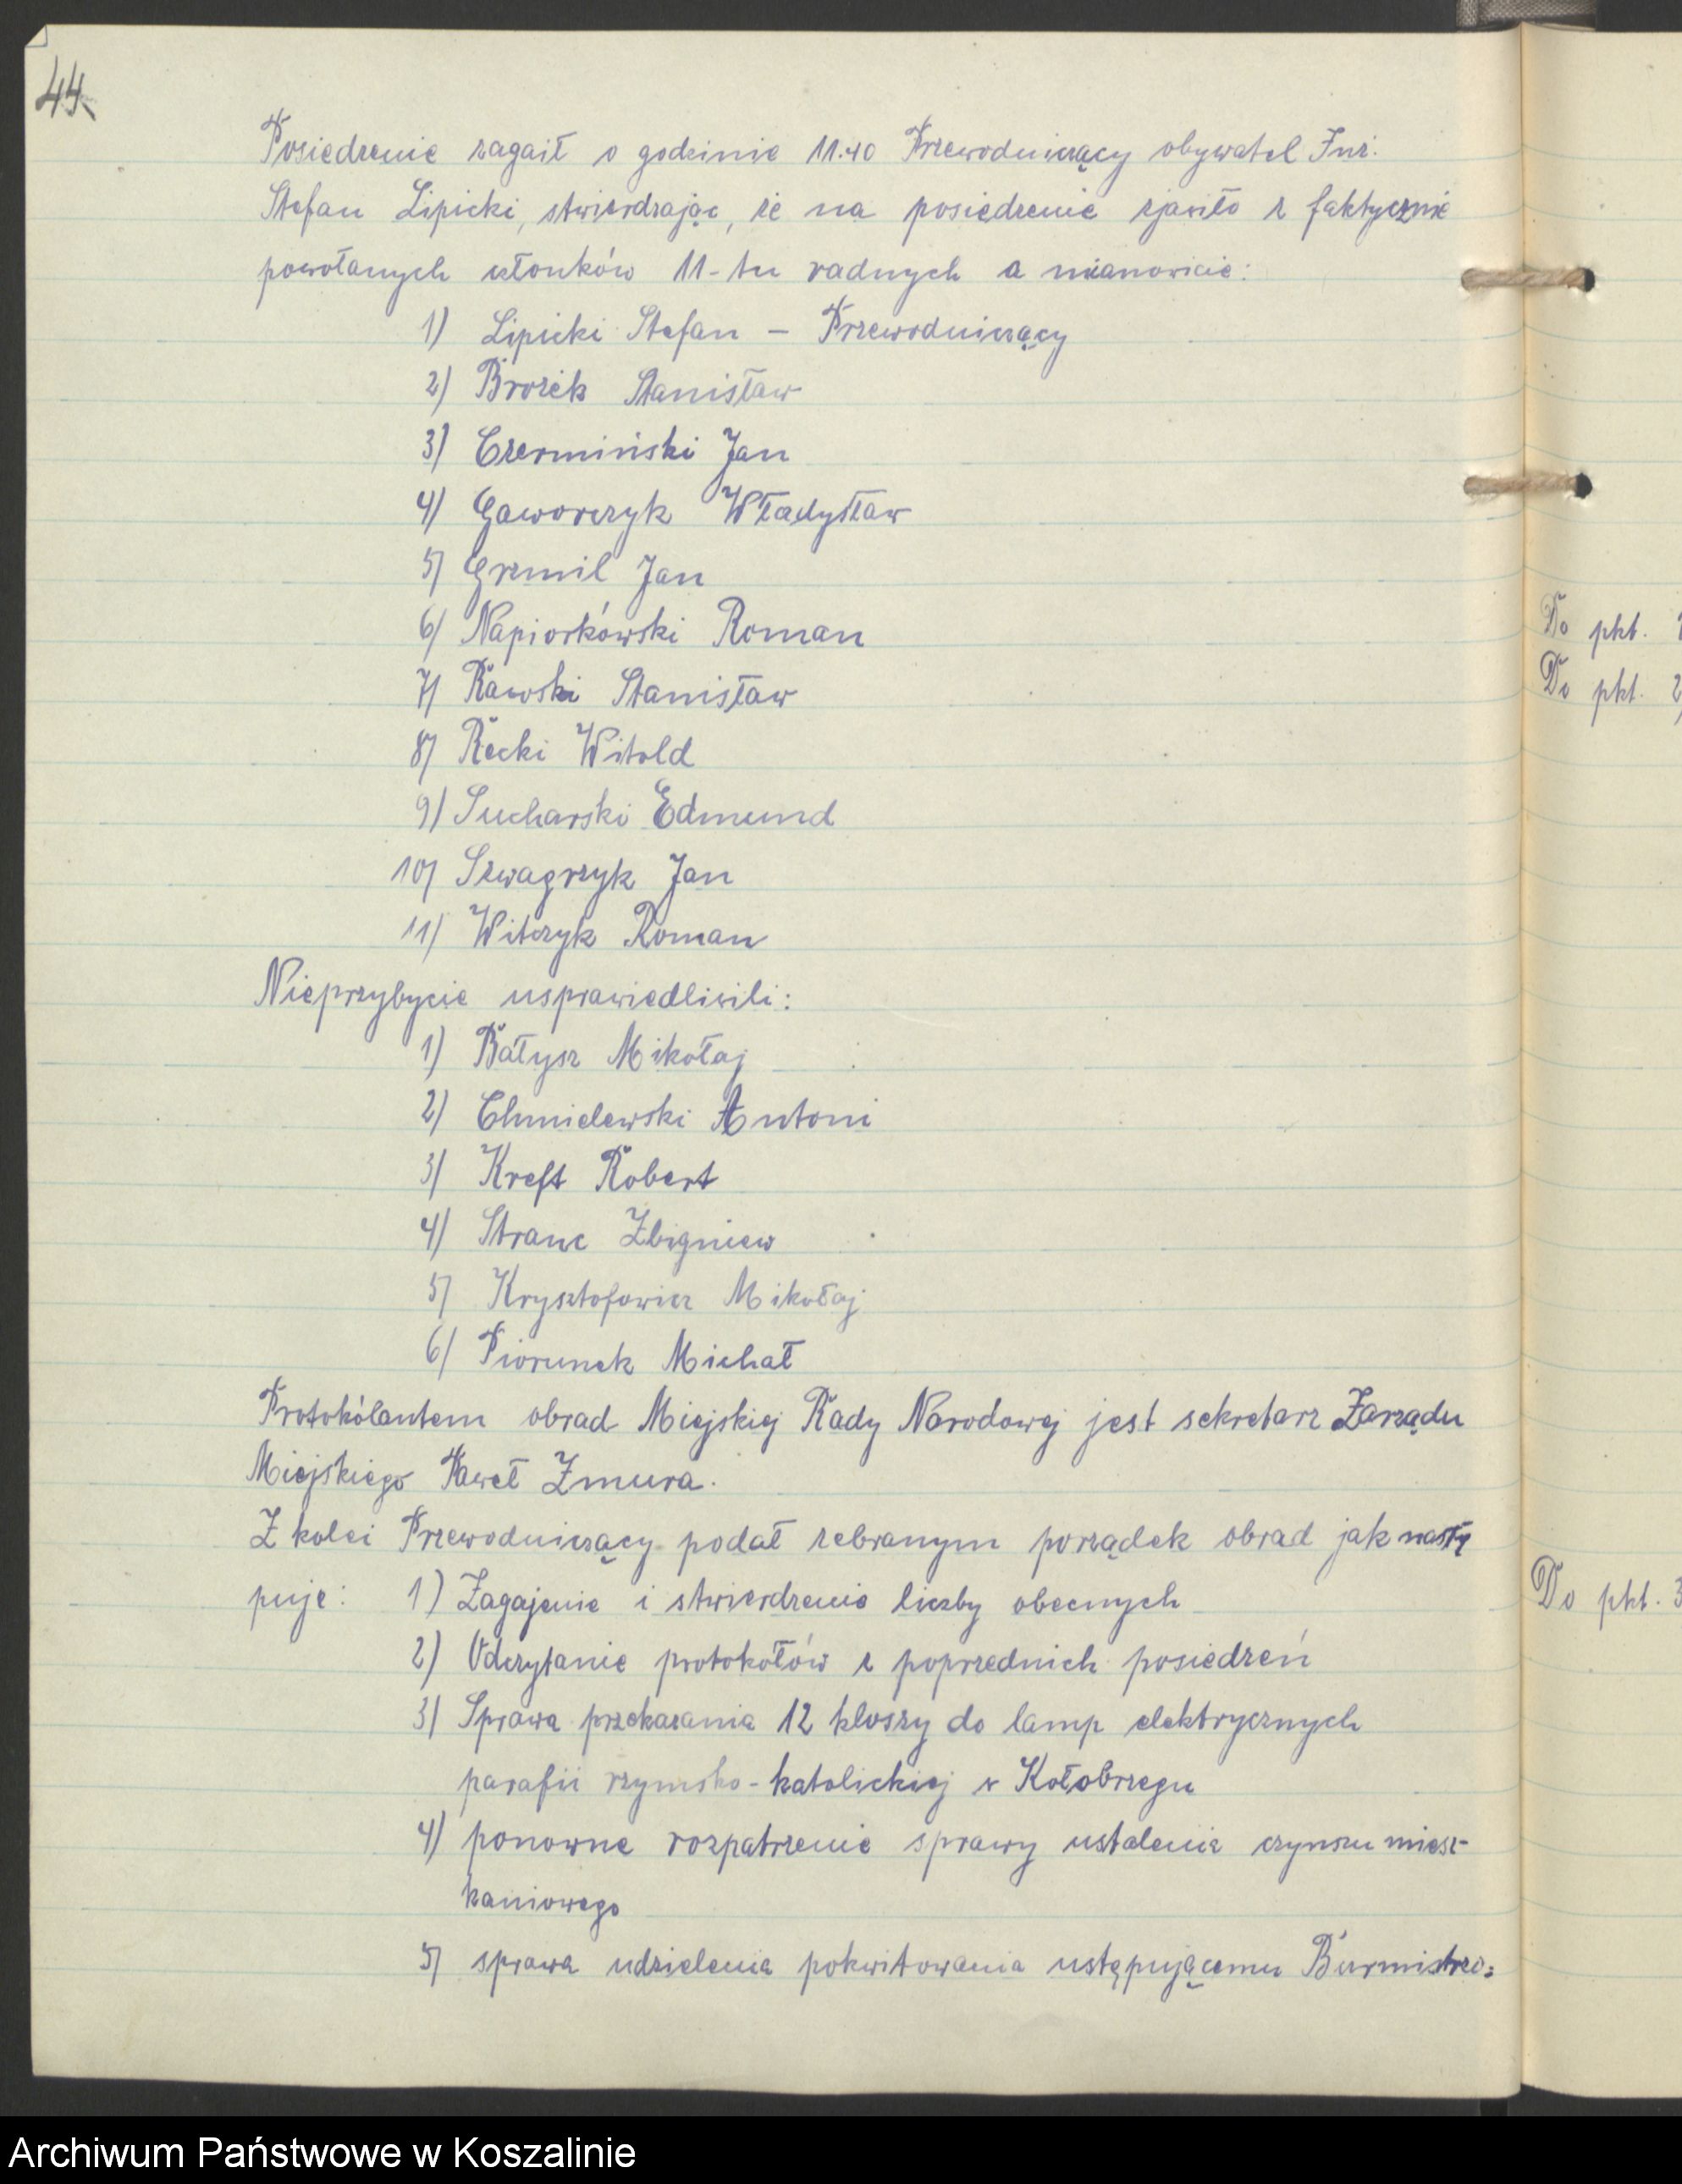 44.
Posiedzenie zagaił o godzinie 11.40 Przewodniczący obywatel Inż.
Stefan Lipicki, stwierdzając, że na posiedzenie zjawiło z faktycznie
powołanych członków 11-tu radnych a mianowicie:
1) Lipicki Stefan – Przewodniczący
2) Brożek Stanisław
3) Czermiński Jan
4) Gaworczyk Władysław
5) Grzmil Jan
6) Napiorkówski Roman
7) Rawski Stanisław
8) Recki Witold
9) Sucharski Edmund
10) Szwagrzyk Jan
11) Witczyk Roman
Nieprzybycie usprawiedliwili:
1) Bałysz Mikołaj
2) Chmielewski Antoni
3) Kreft Robert
4) Stranc Zbigniew
5) Krysztofowicz Mikołaj
6) Piorunek Michał
Protokólantem obrad Miejskiej Rady Narodowej jest sekretarz Zarządu
Miejskiego Paweł Zmura.
Z kolei Przewodniczący podał zebranym porządek obrad jak nastę
puje: 1) Zagajenie i stwierdzenie liczby obecnych
2) Odczytanie protokołów z poprzednich posiedzeń
3) Sprawa przekazania 12 kloszy do lamp elektrycznych
parafii rzymsko-katolickiej w Kołobrzegu
4) ponowne rozpatrzenie sprawy ustalenia czynszu miesz-
kaniowego
5) sprawa udzielenia pokwitowania ustępującemu Burmistrzo=
Do pkt. 1
Do pkt. 2)
Do pkt. 3
Archiwum Państwowe w Koszalinie